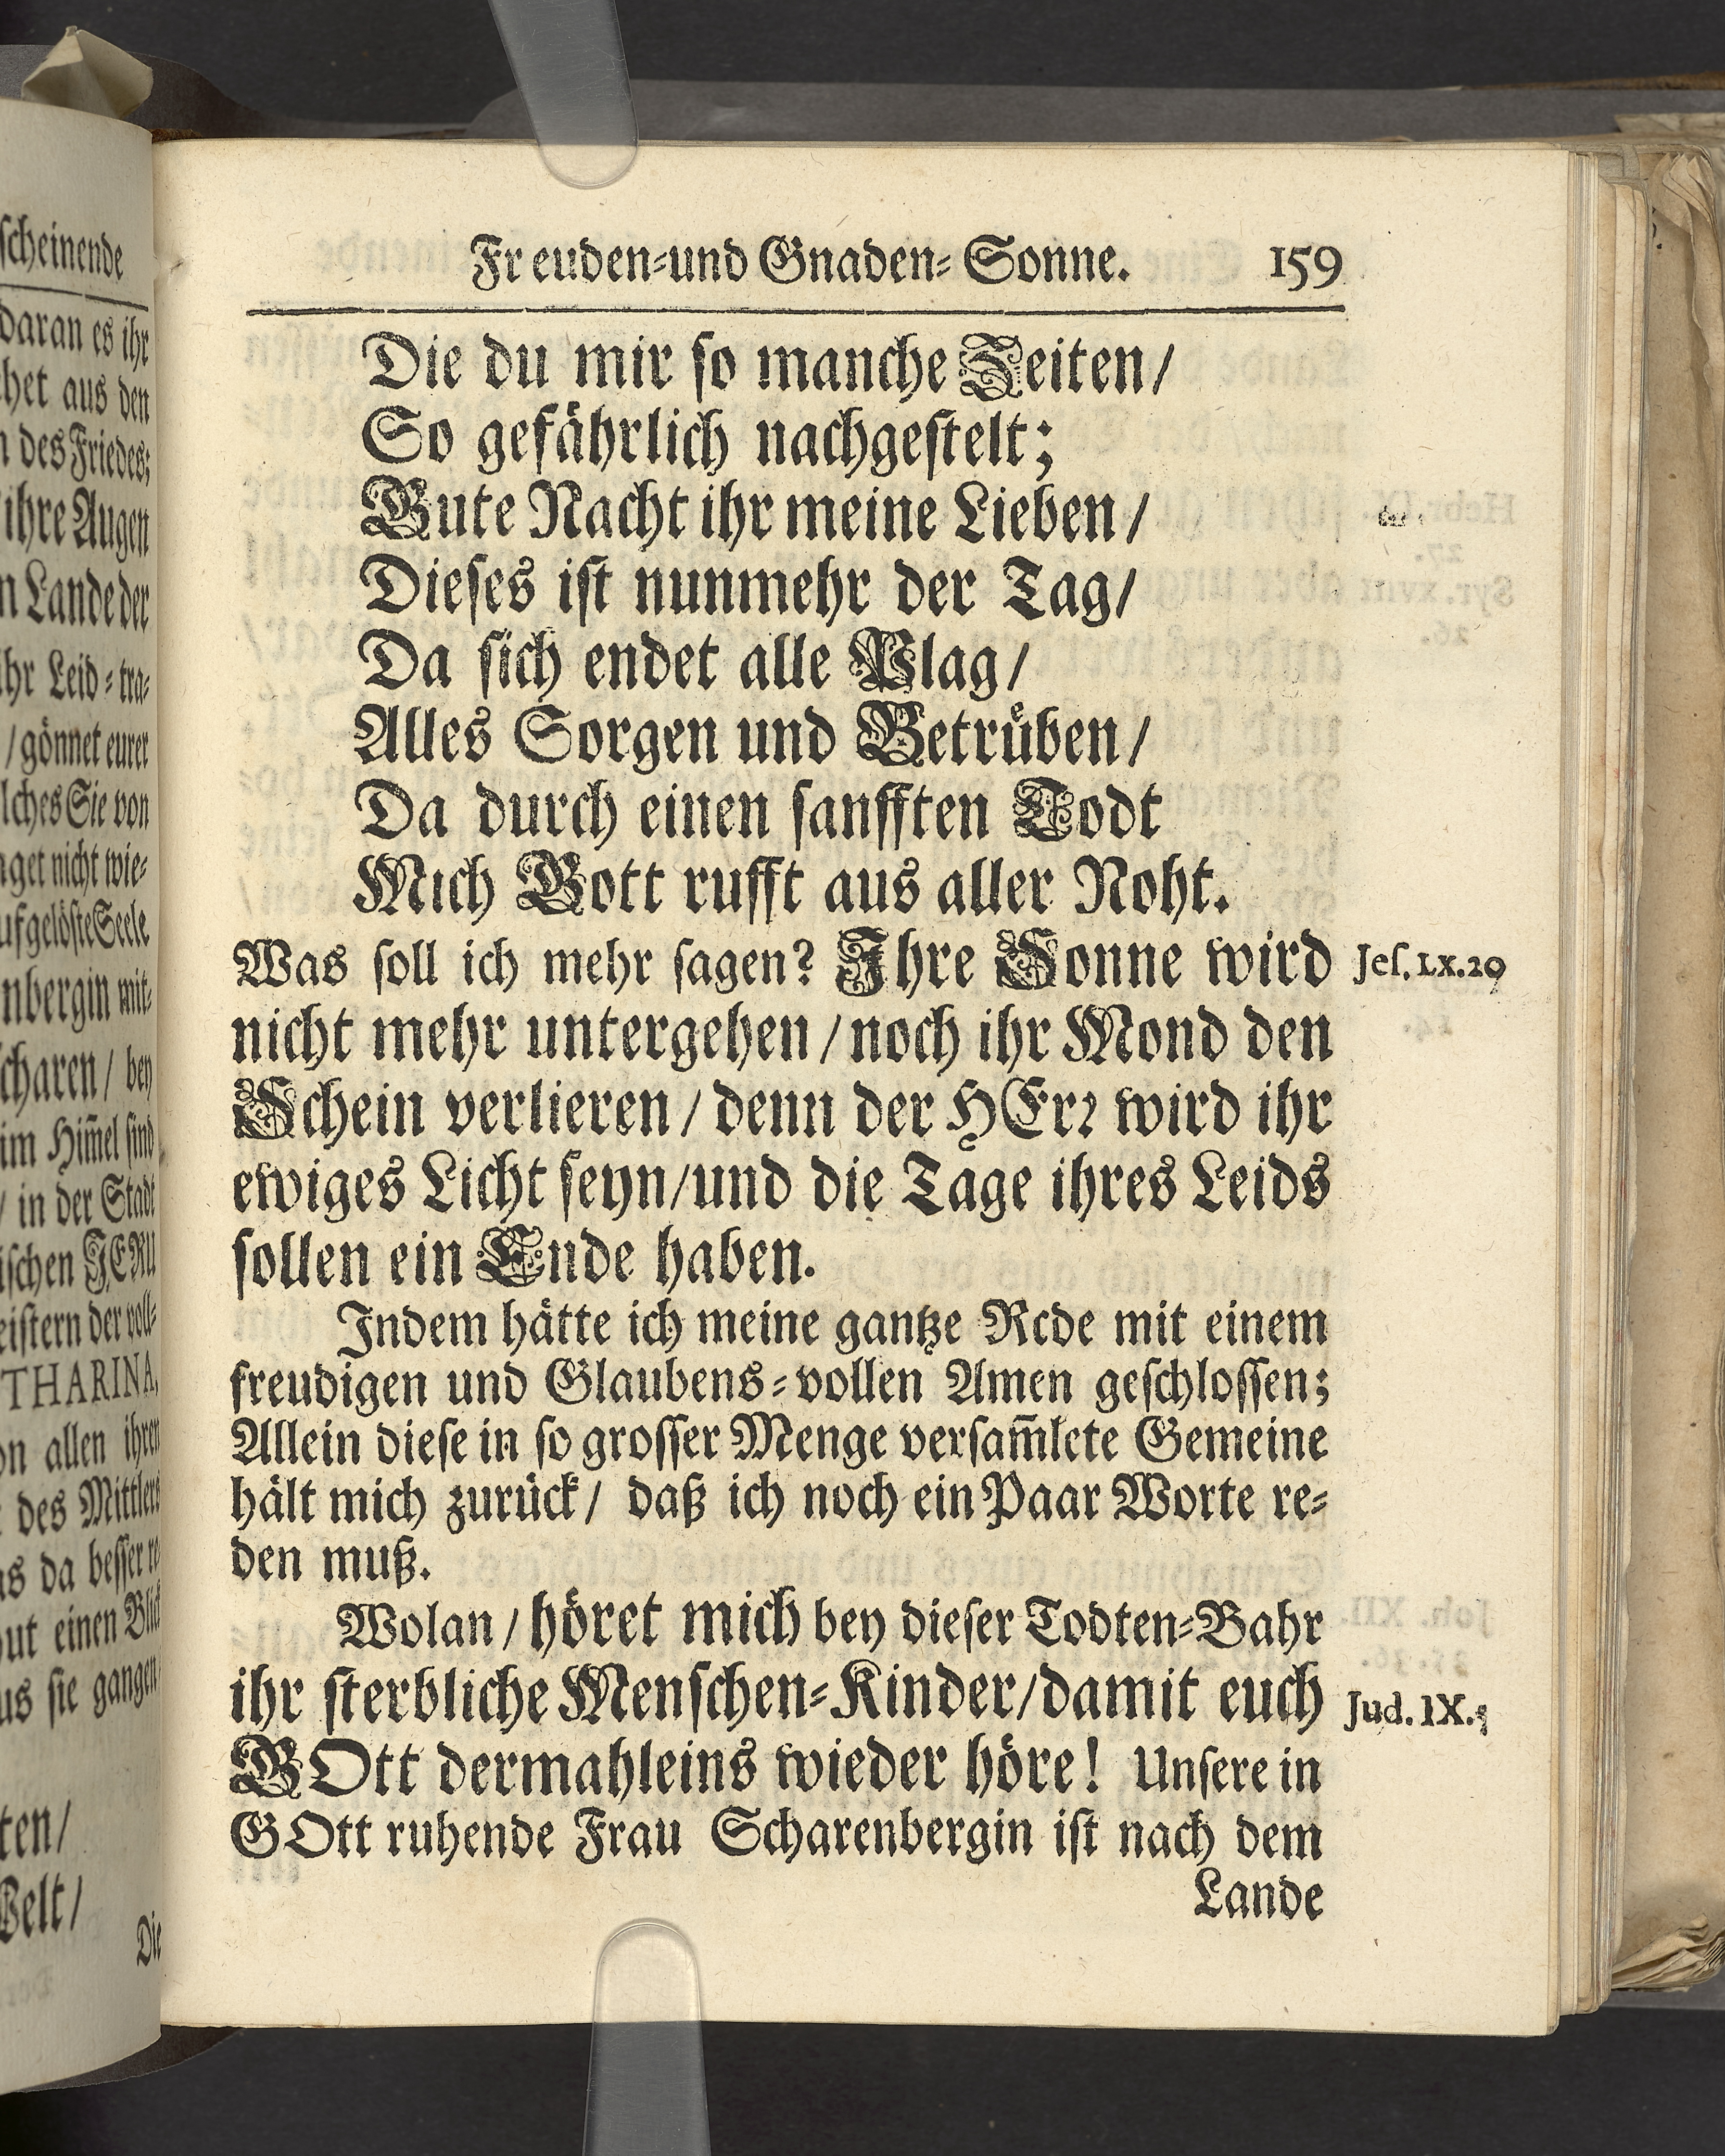 Freuden-und Gnaden-Sonne. 159
Die du mir so manche Zeiten/
So gefährlich nachgestelt;
Gute Nacht ihr meine Lieben/
Dieses ist nunmehr der Tag/
Da sich endet alle Plag/
Alles Sorgen und Betrüben/
Da durch einen sanfften Todt
Mich Gott rufft aus aller Noht.
Was soll ich mehr sagen? Ihre Sonne wird
Jes. LX. 20
nicht mehr untergehen/noch ihr Mond den
Schein verlieren/denn der HErr wird ihr
ewiges Licht seyn/und die Tage ihres Leids
sollen ein Ende haben.
Indem hätte ich meine gantze Rede mit einem
freudigen und Glaubens-vollen Amen geschlossen;
Allein diese in so grosser Menge versam̃lete Gemeine
hält mich zurück/ daß ich noch ein Paar Worte re-
den muß.
Wolan/höret mich bey dieser Todten-Bahr
ihr sterbliche Menschen-Kinder/damit euch
Jud. IX.
GOtt dermahleins wieder höre! Unsere in
GOtt ruhende Frau Scharenbergin ist nach dem
Lande
scheinende
daran es ihr
aus den
des Friedes;
ihre Augen
Lande der
Leid-tra-
/gönnet eurer
Sie von
nicht wie-
mit-
/ bey
im Him̃el sind
/ in der Stadt
der voll-
allen ihren
des Mittlers
da besser re-
einen Blick
sie gangen
Die